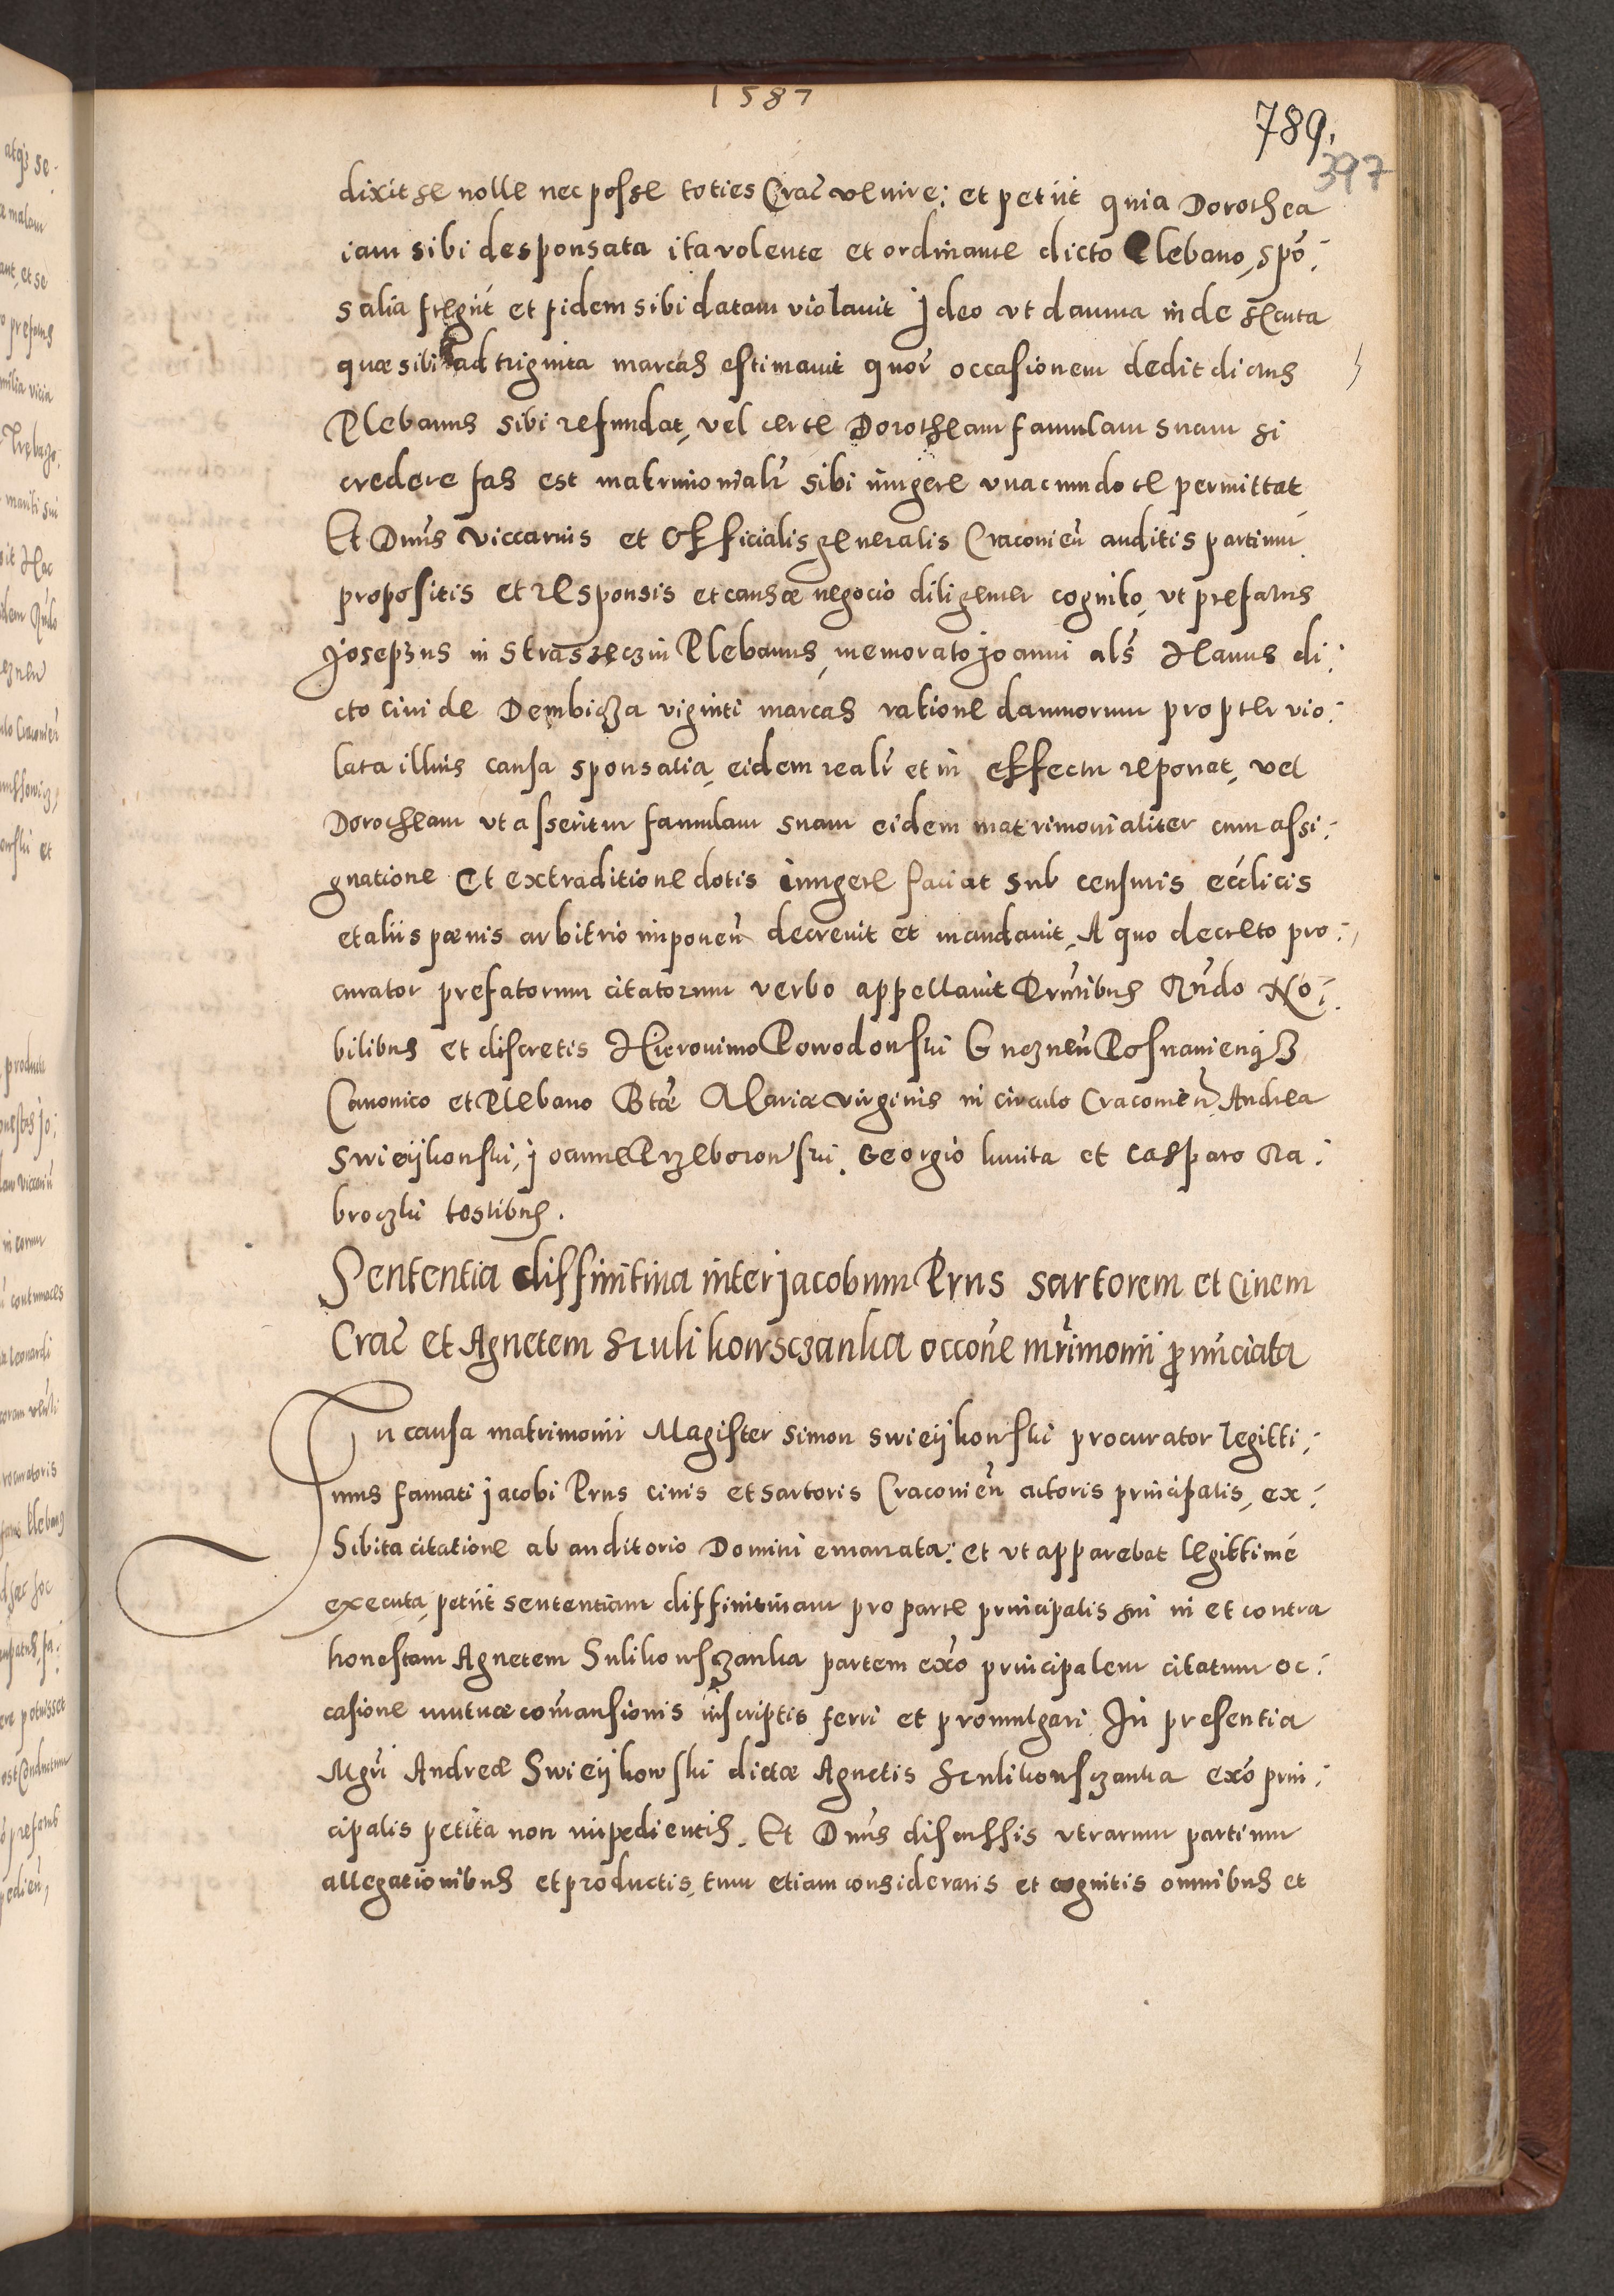 1587
789.
397
dixit se nolle nec posse toties Crac̄ venire: et petiit quia Dorothea
iam sibi desponsata ita volente et ordinante dicto Plebano, spō:
salia fregit et fidem sibi datam violavit Ideo vt damna inde secuta
quæ sibi ad triginta marcas estimavit quor̄ occasionem dedit dictus
Plebanus sibi refundat, vel certe Dorotheam famulam suam si
credere fas est matrimonialr̄ sibi iungere vnacum dote permittat
Et Dnūs viccarius et Officialis generalis Cracovień auditis partium
propositis et responsis et causæ negocio diligenter cognito, vt prefatus
Josephus in Straszęczin Plebanus, memorato Joanni als̄ Hanus di:
cto civi de Dembicza viginti marcas ratione damnorum propter vio:
lata illius causa sponsalia, eidem realr̄ et in effectu reponat, vel
Dorotheam vt asseritur famulam suam eidem matrimonialiter cum assi:
gnatione et extraditione dotis iungere faciat sub censuris ecc̄licis
et aliis pœnis arbitrio imponeń decrevit et mandavit, A quo decreto pro:
curator prefatorum citatorum verbo appellavit Prn̄tibus Rn̄do No:
bilibus et discretis Hieronimo Powodowski Gneznēn Posnanienq3
Canonico et Plebano Btǣ Mariæ virginis in circulo Cracovień, Andrea
Swieÿkowski, Joanne Przeborowski, Georgio kmita et Casparo Na:
broczki testibus.
Sententia diffinitiva inter Jacobum Prus sartorem et civem
Crac̄ et Agnetem Sulikowsczanka occōne mr̄imonii pronunciata
In causa matrimonii Magister Simon Swieÿkowski procurator legitti:
mus famati Jacobi Prus civis et sartoris Cracovień actoris principalis, ex:
hibita citatione ab auditorio Domini emanata: et vt apparebat legittimé
executa, petiit sententiam diffinitivam pro parte principalis sui in et contra
honestam Agnetem Sulikowsczanka partem exo principalem citatum oc:
casione mutuæ com̄ansionis in scriptis ferri et promulgari In presentia
Mgr̄i Andreæ Swieÿkowski dictæ Agnetis Sulikowsczanka exo prin:
cipalis petita non impedientis. Et Dnūs discussis vtrarum partium
allegationibus et productis, tum etiam consideratis et cognitis omnibus et